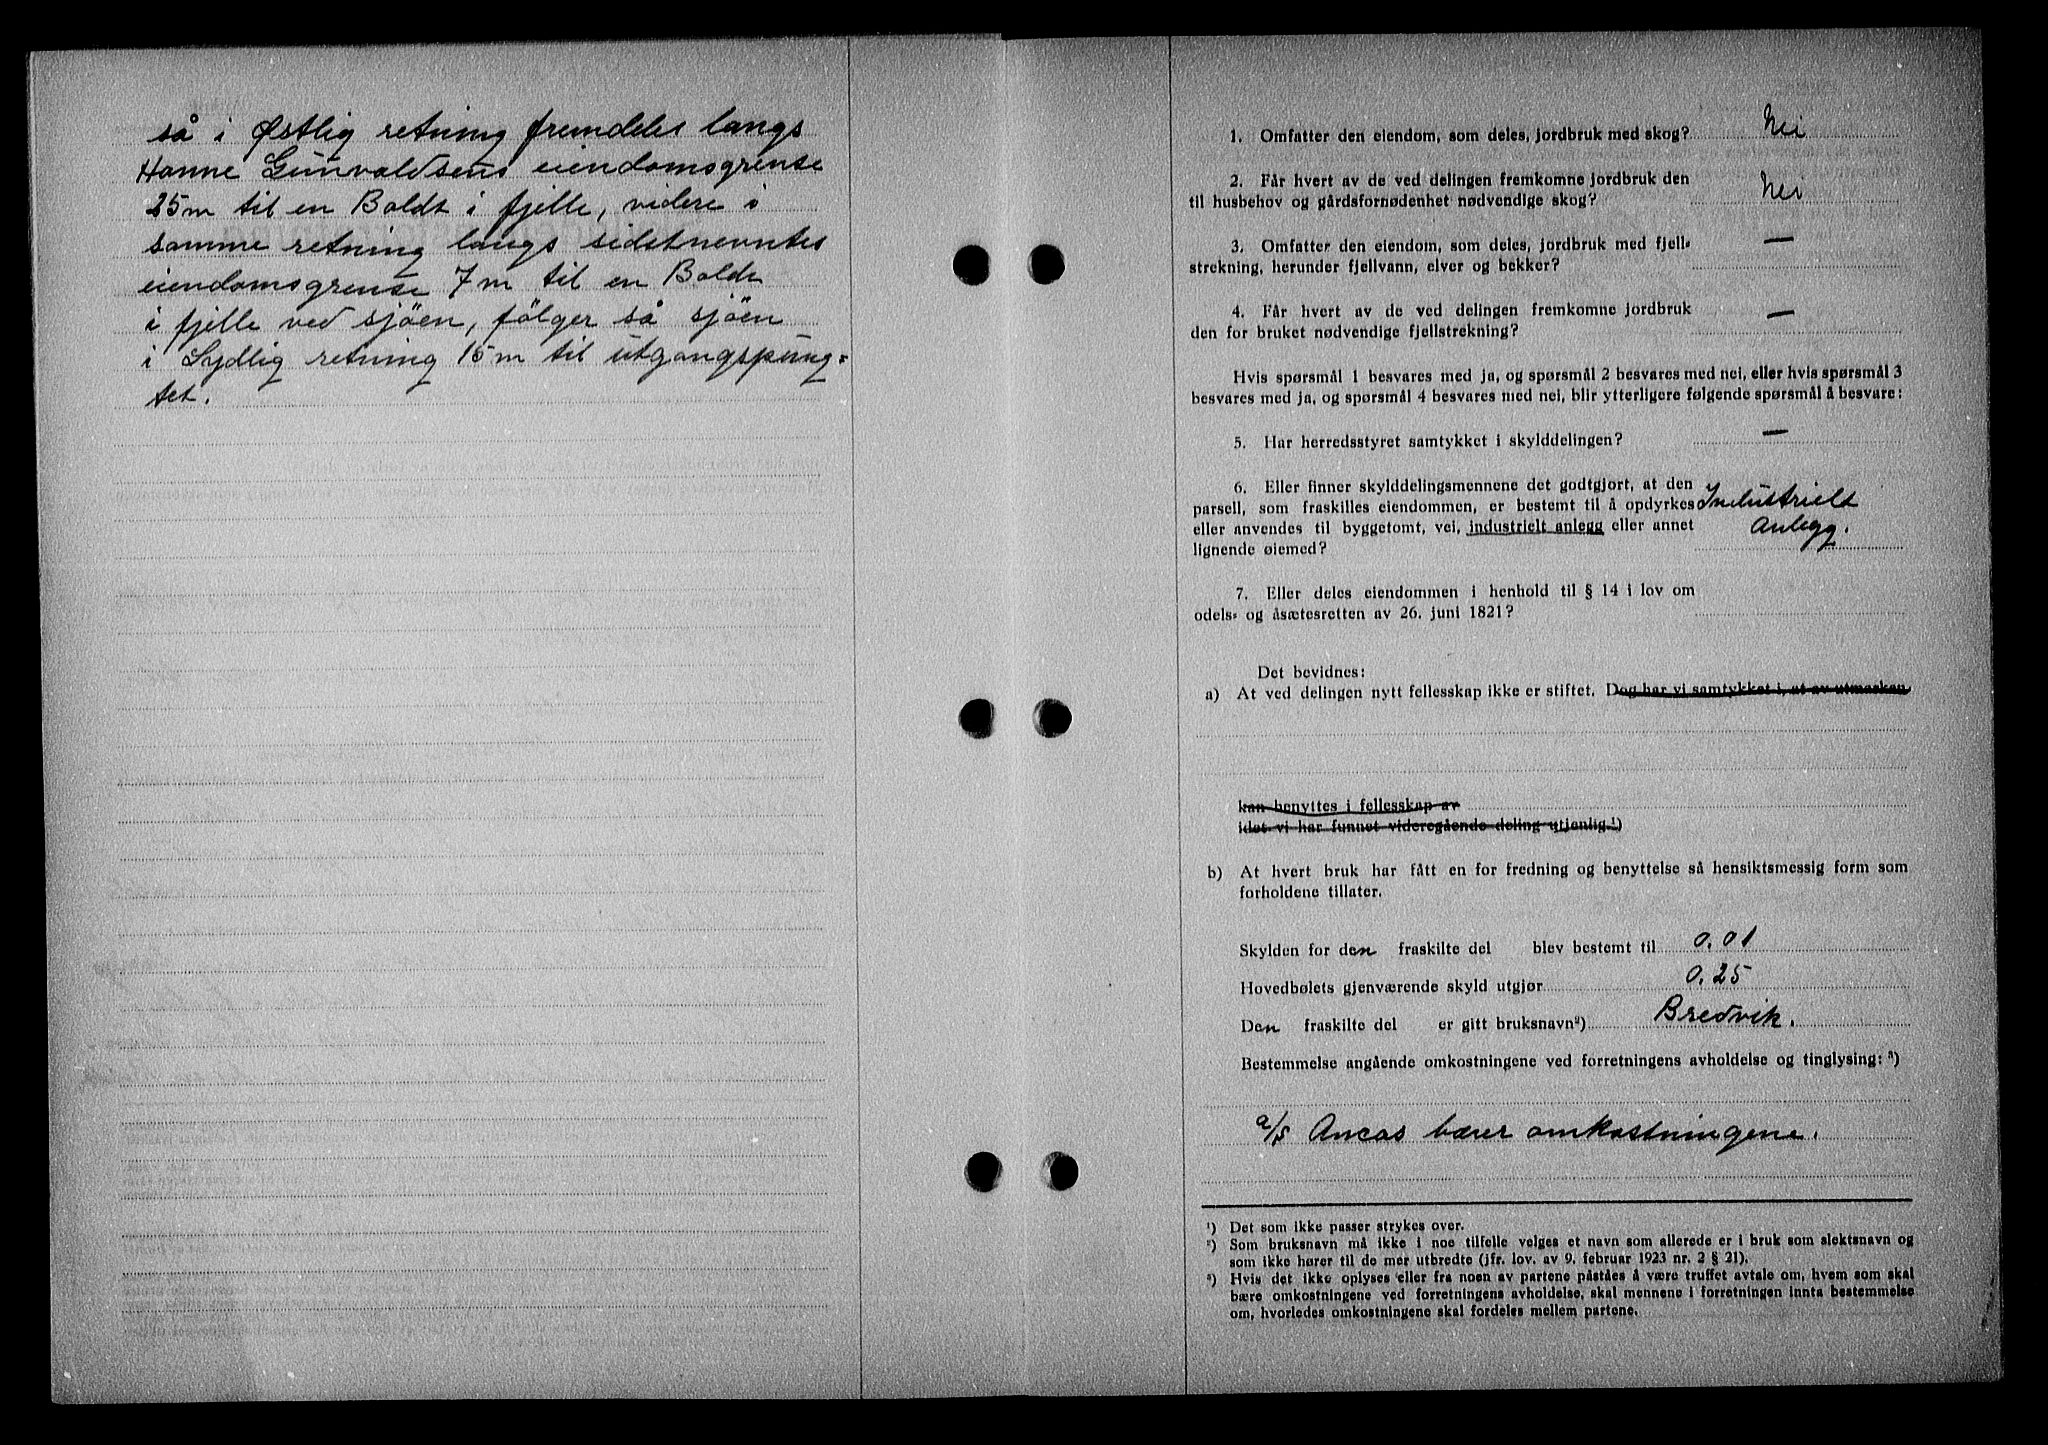 så i Østlig retning fremdeles langs
Hanne Gunvaldsens eiendomsgrense
25m til en Boldt i fjelle, videre i
samme retning langs sidstnevntes
eiendomsgrense 7m til en Boldt
i fjelle ved sjöen, fölger så sjöen
i Sydlig retning 15m til utgangspung=
tet.
1. Omfatter den eiendom, som deles, jordbruk med skog? Nei
2. Får hvert av de ved delingen fremkomne jordbruk den
til husbehov og gårdsfornødenhet nødvendige skog? Nei
3. Omfatter den eiendom, som deles, jordbruk med fjell-
strekning, herunder fjellvann, elver og bekker? —
4. Får hvert av de ved delingen fremkomne jordbruk
den for bruket nødvendige fjellstrekning? —
Hvis spørsmål 1 besvares med ja, og spørsmål 2 besvares med nei, eller hvis spørsmål 3
besvares med ja, og spørsmål 4 besvares med nei, blir ytterligere følgende spørsmål å besvare:
5. Har herredsstyret samtykket i skylddelingen? —
6. Eller finner skylddelingsmennene det godtgjort, at den
parsell, som fraskilles eiendommen, er bestemt til å opdyrkes Industrielt
eller anvendes til byggetomt, vei, industrielt anlegg eller annet Anlegg.
lignende øiemed?
7. Eller deles eiendommen i henhold til § 14 i lov om
odels- og åsætesretten av 26. juni 1821?
Det bevidnes:
a) At ved delingen nytt fellesskap ikke er stiftet. Dog har vi samtykket i, at av utmarken
kan benyttes i fellesskap av
idet vi har funnet videregående deling utjenlig.¹)
b) At hvert bruk har fått en for fredning og benyttelse så hensiktsmessig form som
forholdene tillater.
Skylden for den fraskilte del blev bestemt til 0.01
Hovedbølets gjenværende skyld utgjør 0.25
Den fraskilte del er gitt bruksnavn²) Bredvik.
Bestemmelse angående omkostningene ved forretningens avholdelse og tinglysing: ³)
a/s Ancas bærer omkostningene.
¹) Det som ikke passer strykes over.
²) Som bruksnavn må ikke i noe tilfelle velges et navn som allerede er i bruk som slektsnavn og
som ikke hører til de mer utbredte (jfr. lov. av 9. februar 1923 nr. 2 § 21).
³) Hvis det ikke oplyses eller fra noen av partene påståes å være truffet avtale om, hvem som skal
bære omkostningene ved forretningens avholdelse, skal mennene i forretningen innta bestemmelse
om, hvorledes omkostningene skal fordeles mellem partene.